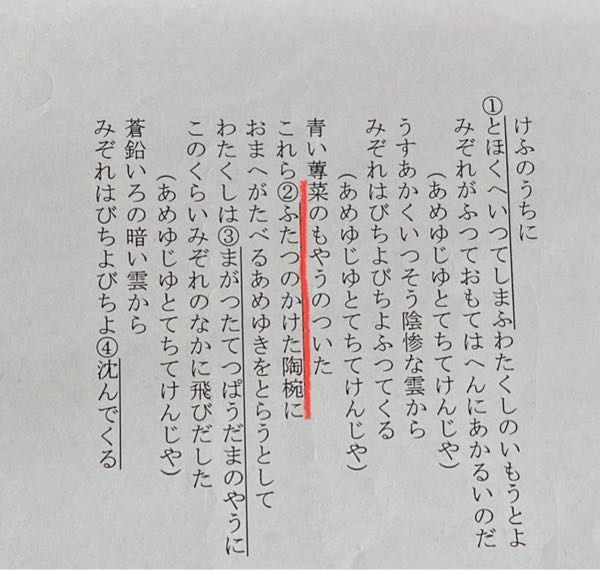 けふのうちに
①とほくへいつてしまふわたくしのいもうとよ
みぞれがふつておもてはへんにあかるいのだ
(あめゆじゆとてちてけんじや)
うすあかくいつそう陰惨な雲から
みぞれはびちよびちよふつてくる
(あめゆじゆとてちてけんじや)
青い蓴菜のもやうのついた
これら②ふたつのかけた陶椀に
おまへがたべるあめゆきをとらうとして
わたくしは③まがつたてつぱうだまのやうに
このくらいみぞれのなかに飛びだした
(あめゆじゆとてちてけんじや)
蒼鉛いろの暗い雲から
みぞれはびちよびちよ④沈んでくる